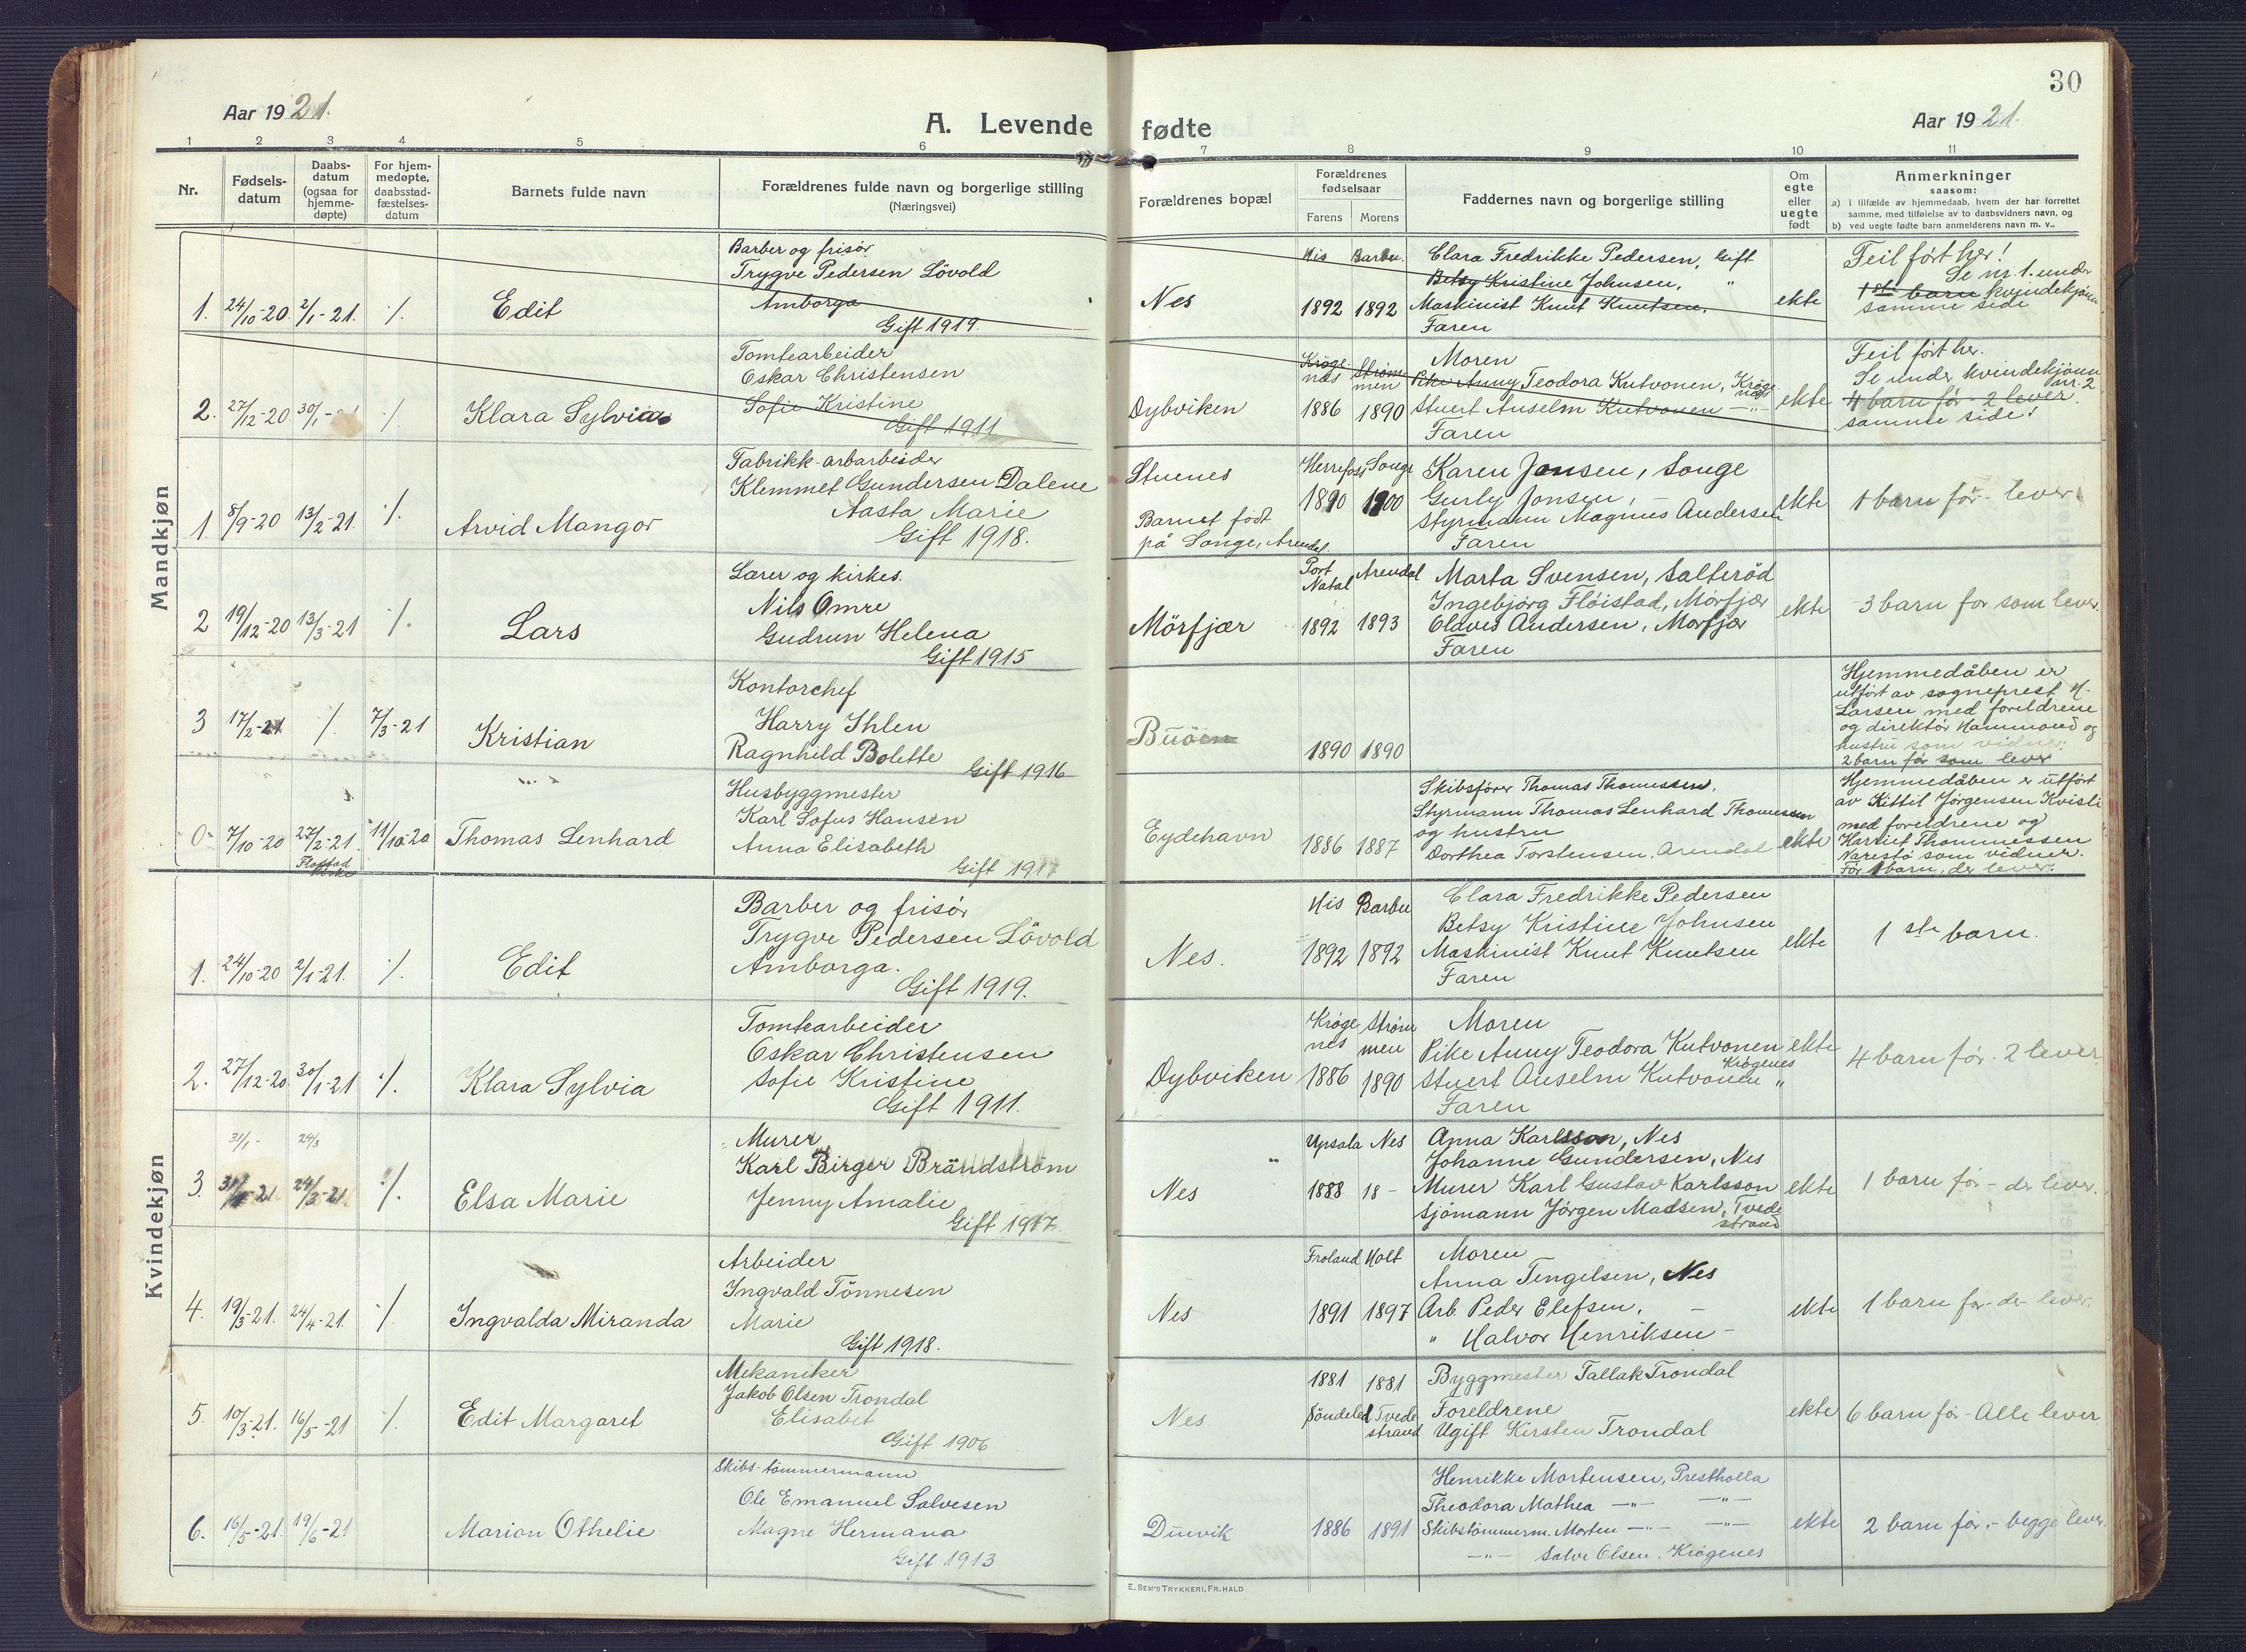 30
Aar 1921.
A. Levende fødte
Aar 1921.
1 2 3 4 5 6 7 8 9 10 11
Nr.
Fødsels-
datum
Daabs-
datum
(ogsaa for
hjemme-
døpte)
For hjem-
medøpte,
daabsstad-
fæstelses-
datum
Barnets fulde navn
Forældrenes fulde navn og borgerlige stilling
(Næringsvei)
Forældrenes bopæl
Forældrenes
fødselsaar
Farens Morens
Faddernes navn og borgerlige stilling
Om
egte
eller
uegte
født
Anmerkninger
saasom:
a) i tilfælde av hjemmedaab, hvem der har forrettet
samme, med tilføielse av to daabsvidners navn, og
b) ved uegte fødte barn anmelderens navn m. v..
Mandkjøn
1. 24/10-20. 2/1-21. ./. Edit
Barber og frisør
Trygve Pedersen Lövold
Amborga
Gift 1919.
Nes
His Barbu.
1892 1892
Clara Fredrikke Pedersen, Gift
Betsy Kristine Johnsen, "
Maskinist Knut Knutsen.
Faren
ekte
Feil ført her!
Se nr. 1. under
1ste barn kvindekjønn
samme side
2. 27/12-20 30/1-21 ./. Klara Sylvia
Tomtearbeider
Oskar Christensen
Sofie Kristine
Gift 1911
Dybviken
Krøge-
nes
Strøm-
men
1886 1890
Moren
Pike Anny Teodora Kutvonen, Krøge-
nes
Stuert Anselm Kutvonen —"—
Faren
ekte
Feil ført her.
Se under kvindekjønn
nr. 2
4 barn før - 2 lever.
samme side!
1 8/9-20 13/2-21. ./. Arvid Mangor
Fabrikk-arbarbeider
Klemmet Gundersen Dalene
Aasta Marie
Gift 1918.
Stuenes
Barnet født
på Songe, Arendal
Herrefoss Songe
1890 1900
Karen Jensen, Songe
Gurly Jonsen, —
Styrmann Magnus Andersen
Faren
ekte
1 barn før - lever
2 19/12-20 13/3-21 ./. Lars
Lærer og kirkes.
Nils Omre
Gudrun Helena
Gift 1915
Mörfjær
Port
Natal
Arendal
1892 1893
Marta Svensen, Salteröd
Ingebjørg Fløistad, Mørfjær
Olaves Andersen, Morfjær
Faren
ekte
3 barn for som lever.
3 17/2-21 /. 7/3-21 Kristian
Kontorchef
Harry Ihlen
Ragnhild Bolette
Gift 1916
Buöen
1890 1890
Hjemmedåben er
utført av sogneprest H.
Larsen med foreldrene
og direktør Hammond og
hustru som vidner.
2 barn før som lever
0 7/10-20 27/2-21. 11/10-20 Thomas Lenhard
Flosstad
kirke
Husbyggmester
Karl Sofus Hansen
Anna Elisabeth
Gift 1917
Eydehavn
1886 1887
Skibsfører Thomas Thomessen.
Styrmann Thomas Lenhard Thomessen
og hustru
Dorthea Torstensen, Arendal
ekte
Hjemmedåben er utført
av Kittil Jørgensen Kvisli
med foreldrene og
Harlief Thommessen
Narestø som vidner.
Før 1 barn, der lever.
Kvindekjøn
1. 24/10-20 2/1-21. ./. Edit
Barber og frisör
Trygve Pedersen Lövold
Amborga.
Gift 1919.
Nes.
His Barbu
1892 1892
Clara Fredrikke Pedersen
Betsy Kristine Johnsen
Maskinist Knut Knutsen
Faren
ekte
1ste barn.
2. 27/12-20 30/1-21 ./. Klara Sylvia
Tomtearbeider
Oskar Christensen
Sofie Kristine
Gift 1911.
Dybviken
Krøge
nes
Strøm
men
1886 1890
Moren
Pike Anny Teodora Kutvonen
Krøgenes
Stuert Anselm Kutvonen "
Faren
ekte
4 barn før. 2 lever
31/1- 24/3
3. 31/1-21 24/3-21 ./. Elsa Marie
Murer
Karl Birger Brändström
Jenny Amalie
Gift 1917.
"
Nes
Upsala Nes
1888 18-
Anna Karlsson, Nes
Johanne Gundersen, Nes
Murer Karl Gustav Karlsson
Sjömann Jørgen Madsen, Tvede
strand
ekte
1 barn før - der lever.
4. 19/3-21. 24/4-21. ./. Ingvalda Miranda
Arbeider
Ingvald Tönnesen
Marie
Gift 1918.
Nes
Froland Holt
1891 1897
Moren
Anna Tengelsen, Nes
Arb. Peder Elefsen. —
" Halvor Henriksen —
ekte
1 barn før - der lever.
5. 10/3-21. 16/5-21 ./. Edit Margaret
Mekaniker
Jakob Olsen Trondal
Elisabet
Gift 1906
Nes
1881 1881
Söndeled Tvede
strand
Byggmester Tallak Trondal
Foreldrene
Ugift Kirsten Trondal
ekte
6 barn før - Alle lever
6. 16/5-21. 19/6-21 Marion Othelie
Skibs-tömmermann
Ole Emanuel Salvesen
Magne Hermana
Gift 1913
Duevik
1886 1891
Henrikke Mortensen, Prestholla
Theodora Mathea —"— —"—
Skibstömmerm. Morten —"— —"—
—"— Salve Olsen. Krøgenes
ekte
2 barn før.- begge lever.
E. SEM'S TRYKKERI, FR.HALD